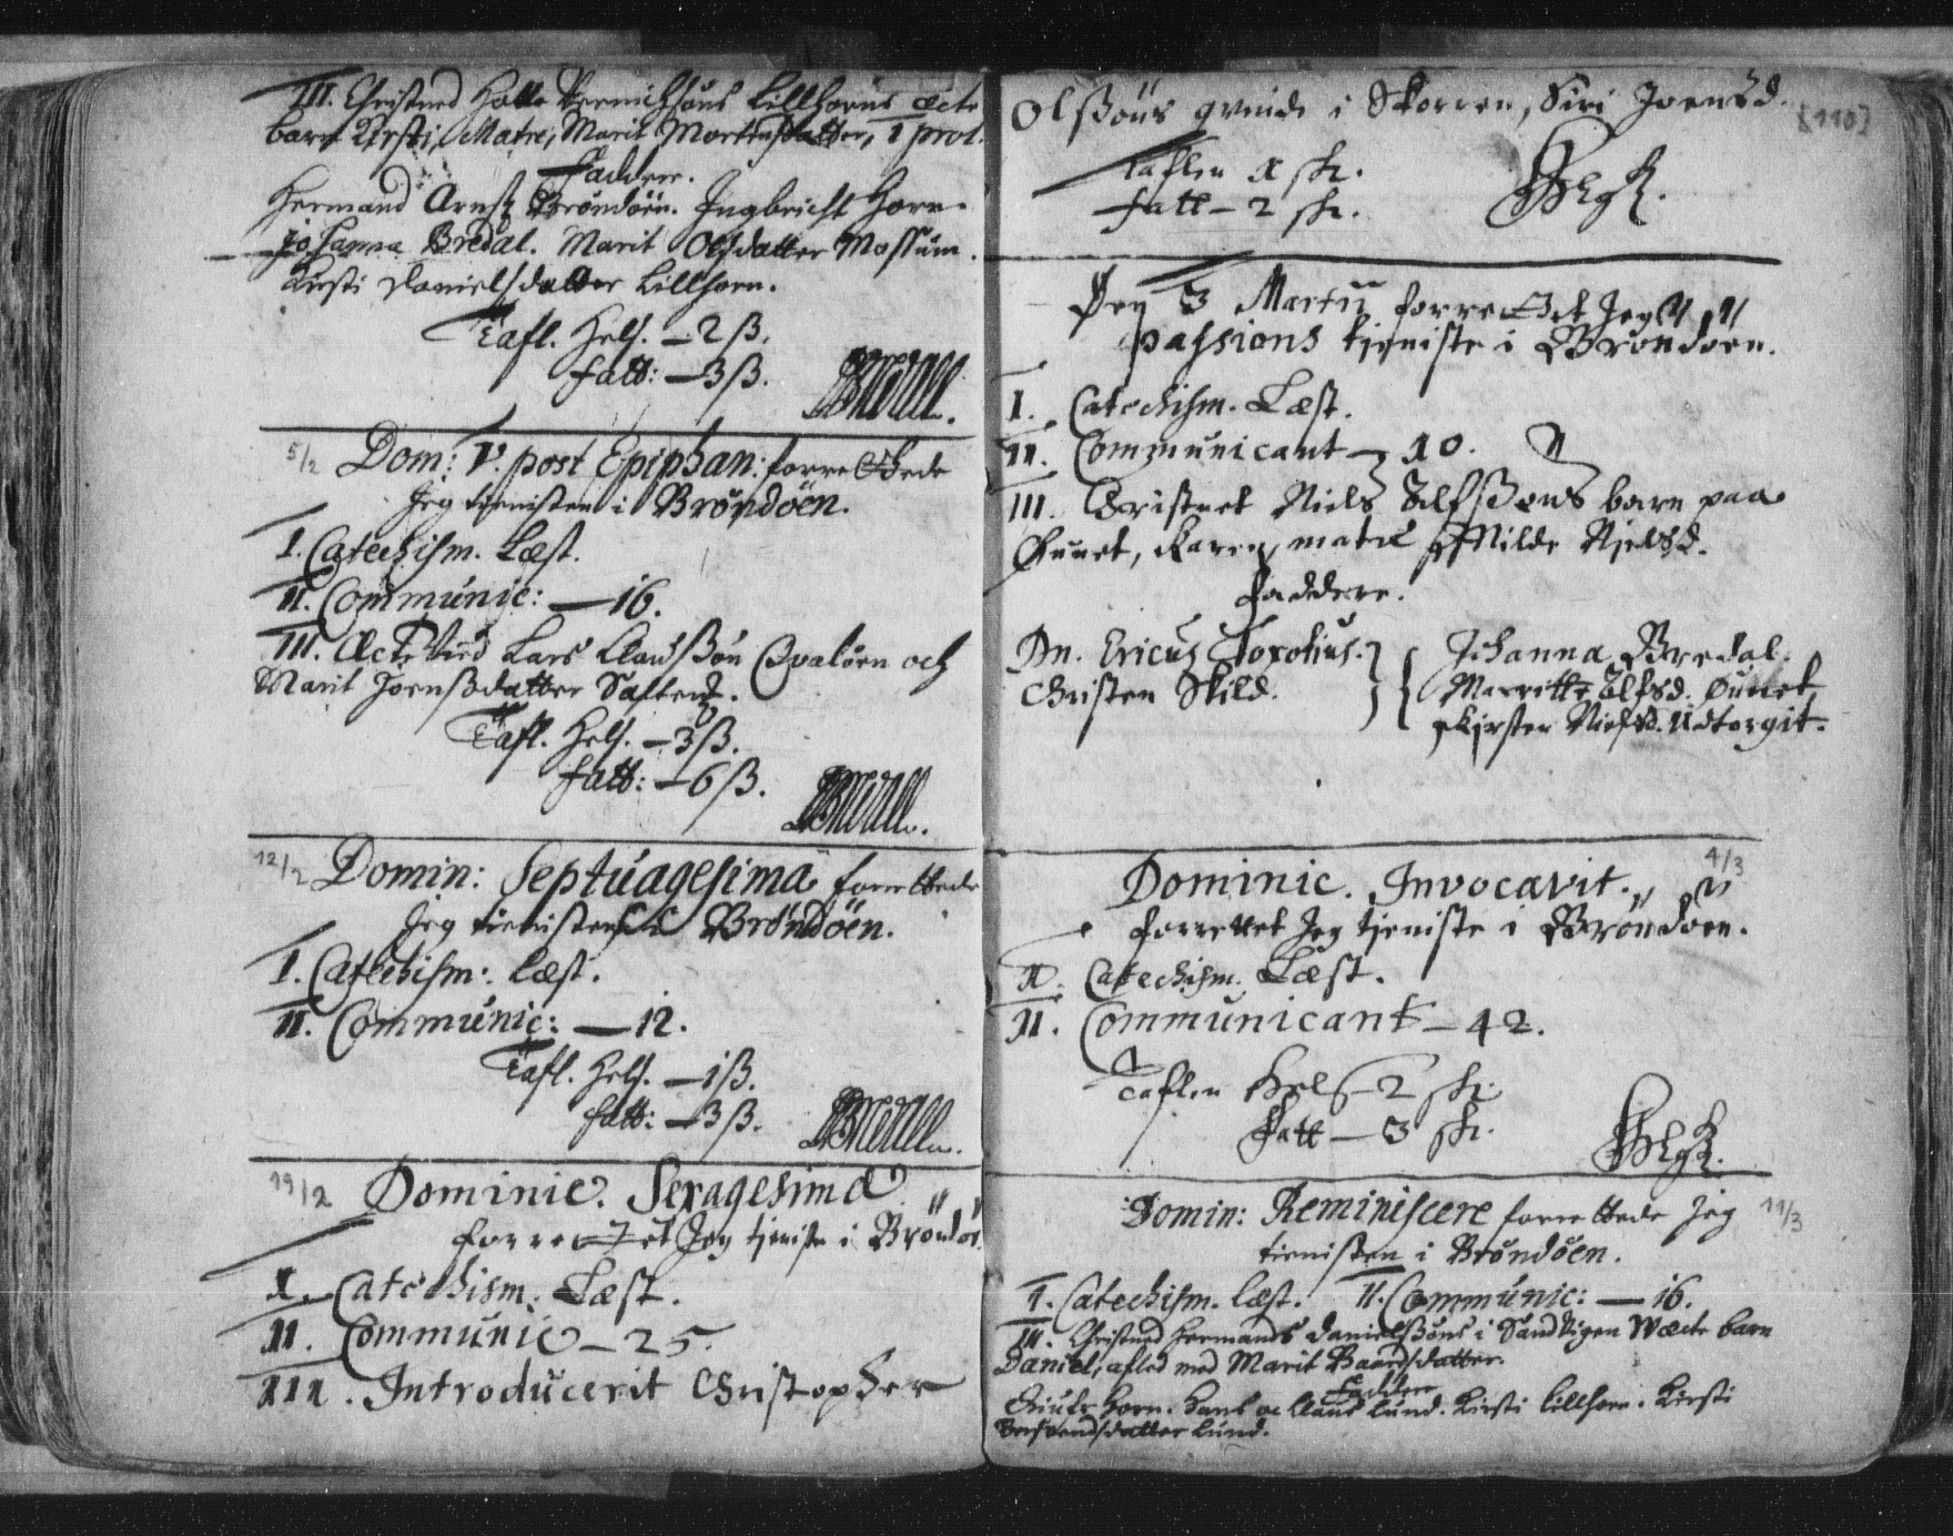 III. Christned Halle Bernichsøns Lillhorns æcte
barn Kirsti, Matre, Marit Mortensdatter, 1 prol.
Faddere.
Hermand Arnsz Brøndøen. Ingbricht Horn.
Johanna Bredal. Marit Olsdatter Mossum.
Kirsti Danielsdatter Lillhorn.
Tafl. Hels. – 2 ß.
fatt: – 3 ß.
5/2 Dom: V. post Epiphan: forrettede
Jeg tienisten i Brøndöen.
I. Catechism. Læst.
II. Communic: – 16.
III. Æcte Vied Lars Clausßøn Hvalöen och
Marit Joensdatter
Tafl. Hels. – 3 ß.
fatt: – 6 ß.
12/2 Domin: Septuagesima forrettede
Jeg tienisten i Brøndöen.
I. Catechism: læst.
II. Communic: – 12.
Tafl. Hels. – 1 ß.
fatt: – 3 ß.
19/2 Dominic. Sexagesima
forrettet Jeg tjeniste i Brøndøe
I. Catechism. Læst.
II. Communic – 25.
III. Introducerit Christopher
[110]
Olßøns qvinde i Skorren, Siri Joensd.
Taflen 1 sk.
fatt – 2 sk.
Den 3 Martii forrettet Jeg
passions tjeniste i Brøndøen.
I. Catechism. Læst.
II. Communicant – 10.
III. Christnet Niels Alfßøns barn paa
Øuuet, Karen, matre Milde Nielsd.
Faddere.
Dn. Ericus Toxotius. Johanna Bredal.
Christen Skild. Marritte Alfsd. Øuuet
Kirsten Nielsd. Udtorgit.
4/3
Dominic. Invocavit.
forrettet Jeg tjeniste i Brøndøen.
I. Catechism. Læst.
II. Communicant – 42.
Taflen Hels – 2 sk.
Fatt – 3 sk.
Domin: Reminiscere forrettede Jeg 11/3
tienisten i Brøndöen.
I. Catechism. læst. II. Communic: – 16.
III. Christned Hermands Danielsßøns i Sandvigen Wæcte barn
Daniel, afled med Marit Baardsdatter.
Faddere
Horn. Hans oc Claus Lund. Kirsti Lillhorn. Kirsti
Lund.